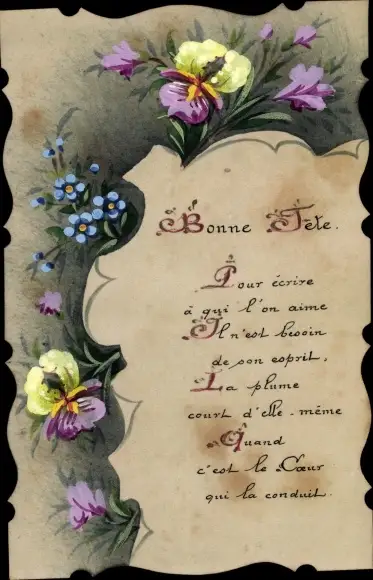 Bonne Fête.
Pour écrire
à qui l'on aime
Il n'est besoin
de son esprit,
La plume
court d'elle-même
Quand
c'est le Cœur
qui la conduit.